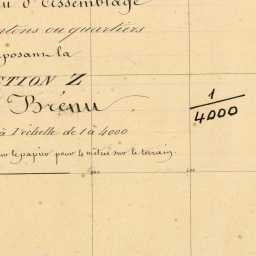 d'Assemblage
cantons ou quartiers
composant la
SECTION Z
Brénu
1/4000
à l'échelle de 1 à 4000
sur le papier pour 4 mètres sur le terrain.